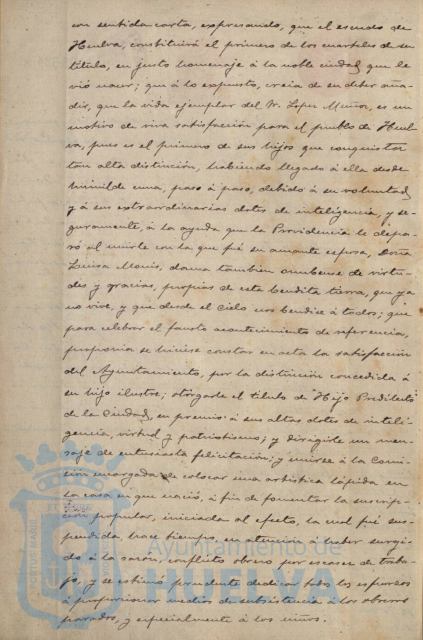 con sentida carta, expresando, que el escudo de
Huelva, constituirá el primero de los cuarteles de su
título, en justo homenaje á la noble ciudad que le
vió nacer; que á lo expuesto, creia de su deber aña-
dir, que la vida ejemplar del Sr. Lopez Muñoz, es un
motivo de viva satisfacción para el pueblo de Huel-
va, pues es el primero de sus hijos que conquistar
tan alta distinción, habiendo llegado á ella desde
humilde cuna, paso á paso, debido á su voluntad,
y á sus extraordinarias dotes de inteligencia, y se-
guramente, á la ayuda que la Providencia le depa-
ró al unirle con la que fué su amante esposa, Doña
Luisa dama tambien onubense de virtu-
des y gracias, propias de esta bendita tierra, que ya
no vive, y que desde el Cielo nos bendice á todos; que
para celebrar el fausto acontecimiento de referencia,
proponia se hiciese constar en acta la satisfacción
del Ayuntamiento, por la distinción concedida á
su hijo ilustre; otorgarle el título de "Hijo Predilecto"
de la Ciudad, en premio á sus altas dotes de inteli-
gencia, virtud y patriotismo; y dirigirle un men-
saje de entusiasta felicitación; y unirse á la Comi-
sión encargada de colocar una artistica lápida en
la casa en que nació, á fin de fomentar la suscrip-
ción popular, iniciada al efecto, la cual fué sus-
pendida, hace tiempo, en atención á haber surgi-
do á la sazón, conflicto obrero por escasez de traba-
jo, y se estimó prudente dedicar todo los esfuerzos
á proporcionar medios de subsistencia á los obreros
parados, y especialmente á los niños.
Ayuntamiento de
HUELVA
PORTUS MARIS